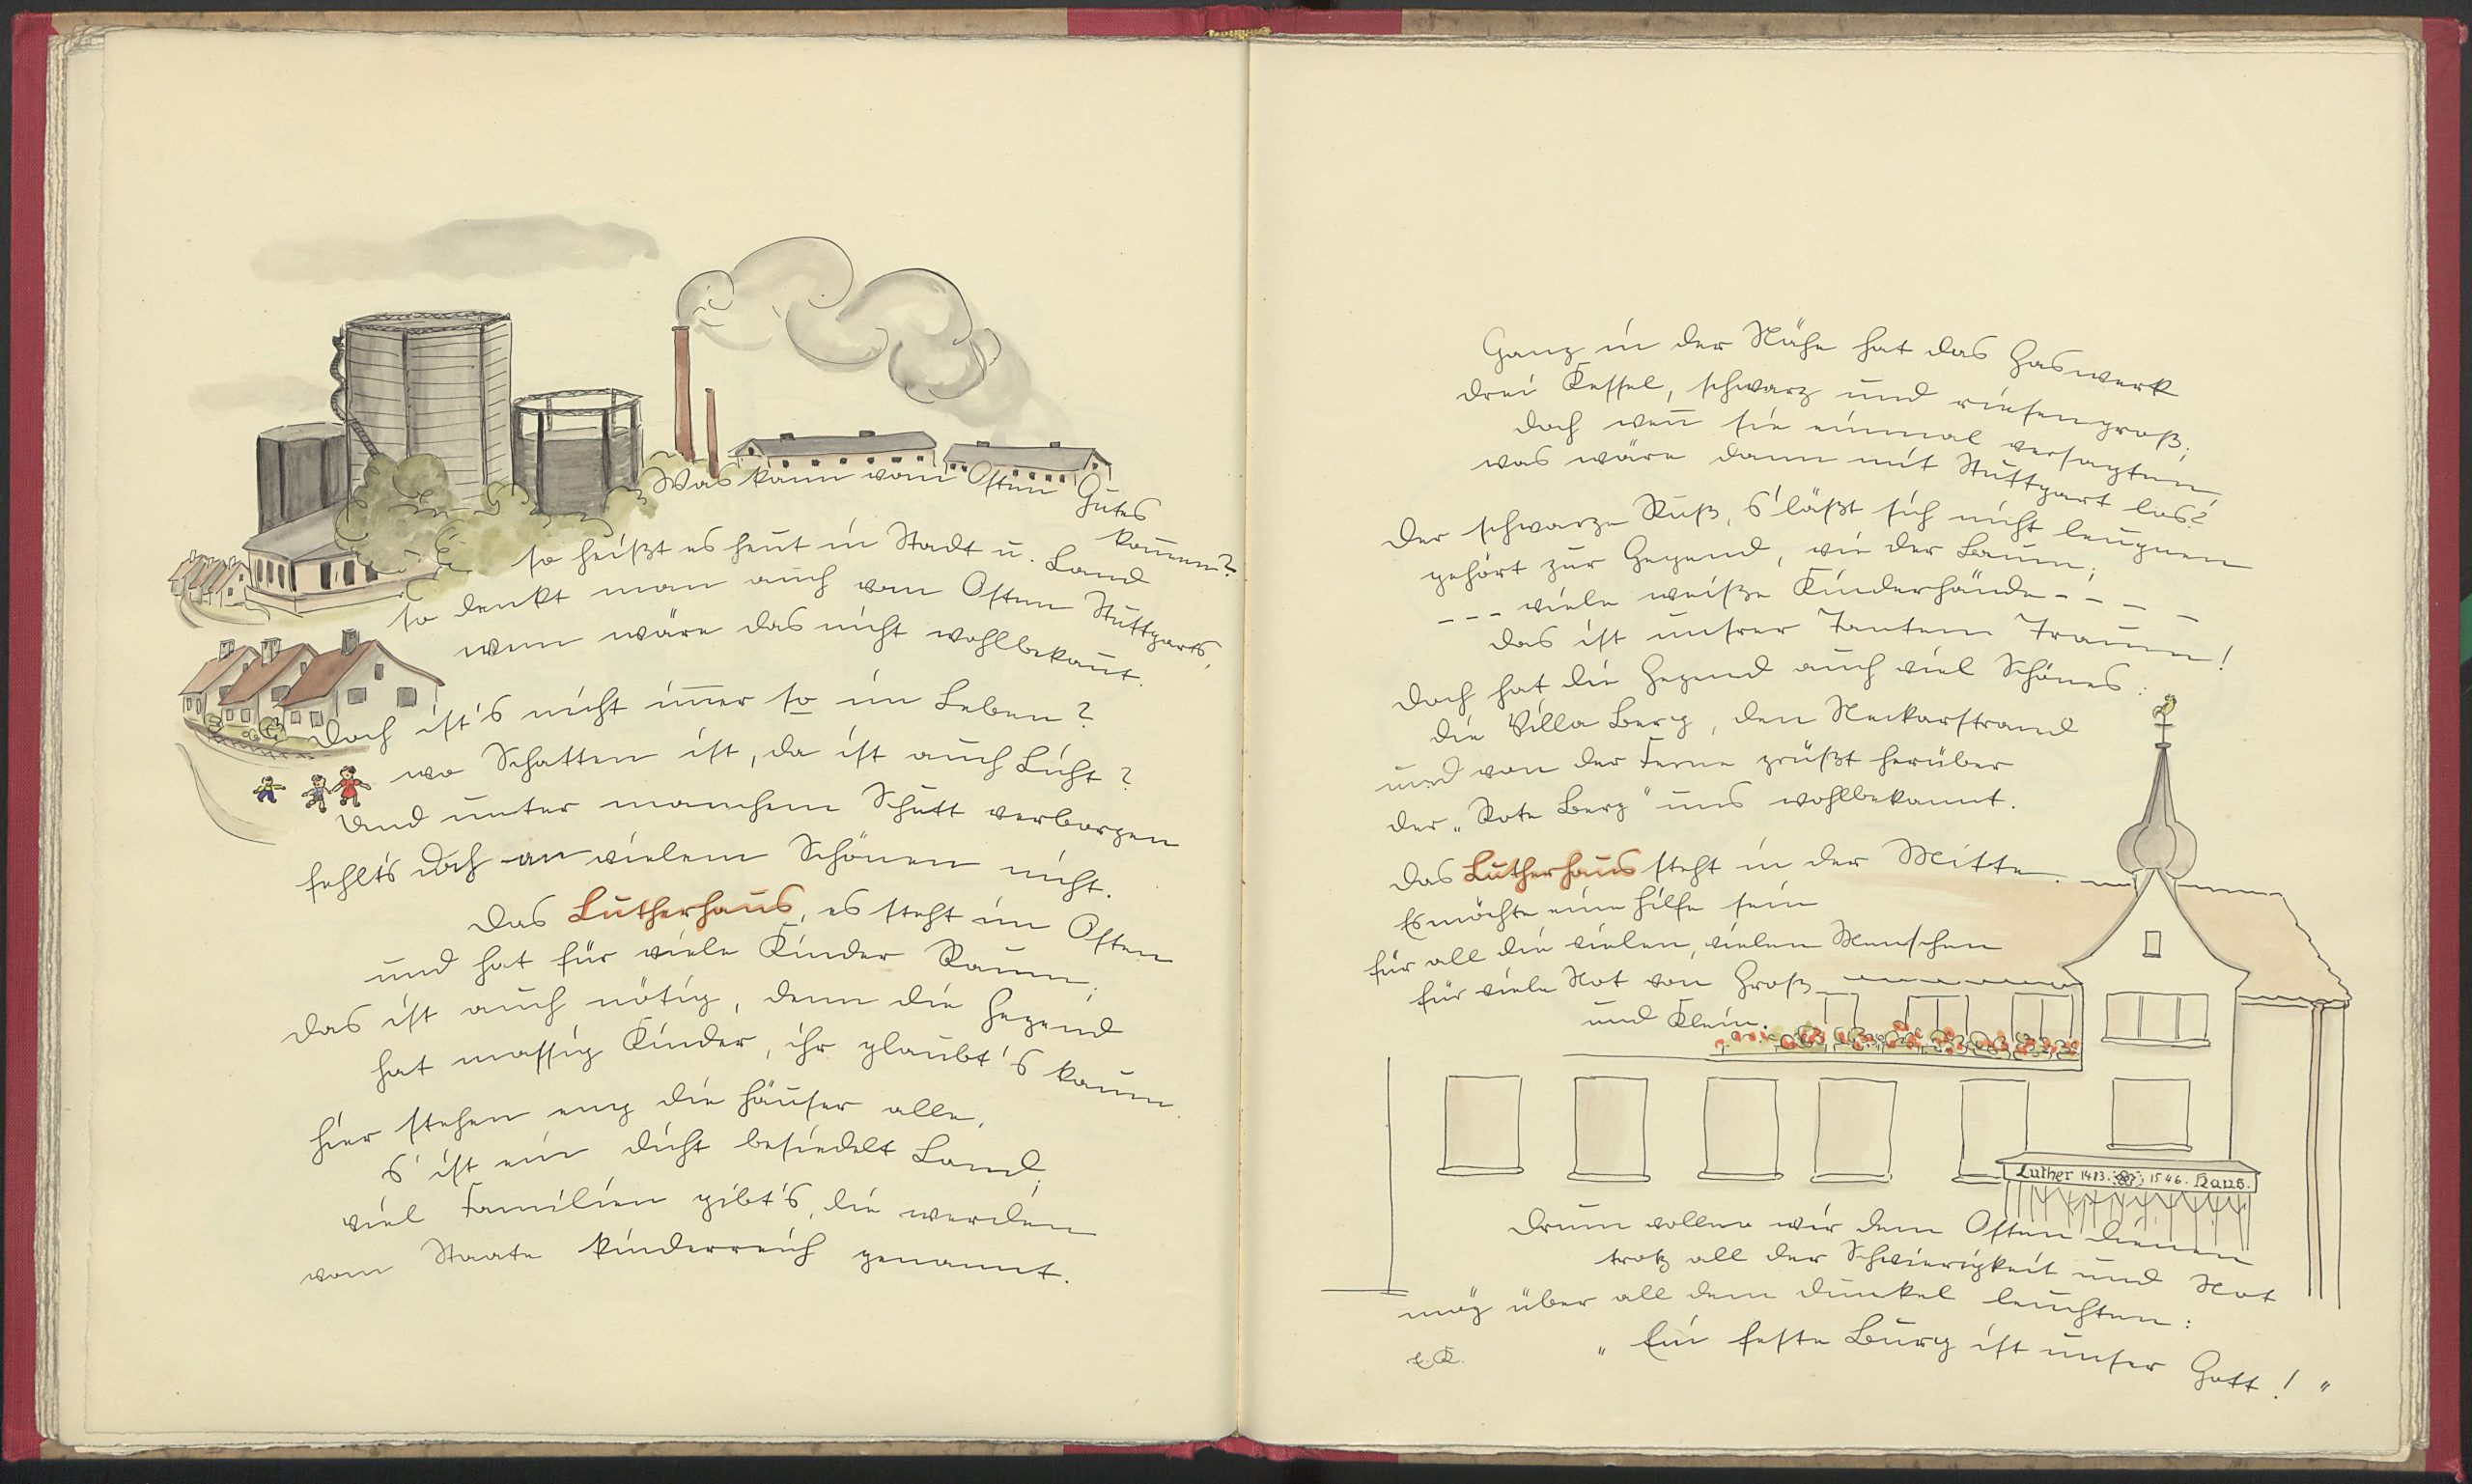 Was kann vom Osten Gutes
kom̄en?
so heißt es heut in Stadt u. Land
so denkt man auch vom Osten Stuttgarts,
wem wäre das nicht wohlbekan̄t.
Doch ist's nicht im̄er so im Leben?
wo Schatten ist, da ist auch Licht?
Und unter manchem Schutt verborgen
fehlt's doch an vielem Schönen nicht.
Das Lutherhaus, es steht im Osten
und hat für viele Kinder Raum;
das ist auch nötig, denn die Gegend
hat massig Kinder, ihr glaubt's kaum.
Hier stehen eng die Häuser alle,
s' ist ein dicht besiedelt Land;
viel Familien gibt's, die werden
vom Staate kinderreich genannt.
Ganz in der Nähe hat das Gaswerk
drei Kessel, schwarz und riesengroß;
doch wen̄ sie einmal versagten,
was wäre dann mit Stuttgart los?
Der schwarze Ruß, s'läßt sich nicht leugnen
gehört zur Gegend, wie der Baum;
--- viele weiße Kinderhände - - - -
das ist unsrer Tanten Traum!
Doch hat die Gegend auch viel Schönes:
die Villa Berg, den Neckarstrand
und von der Ferne grüßt herüber
der „Rote Berg" uns wohlbekannt.
Das Lutherhaus steht in der Mitte.
Es möchte eine Hilfe sein
für all die vielen, vielen Menschen
für viele Not von Groß
und Klein.
Luther 1483. 1546. Haus.
Drum wollen wir dem Osten dienen
trotz all der Schwierigkeit und Not
mög über all dem Dunkel leuchten:
„Ein feste Burg ist unser Gott!"
E.K.